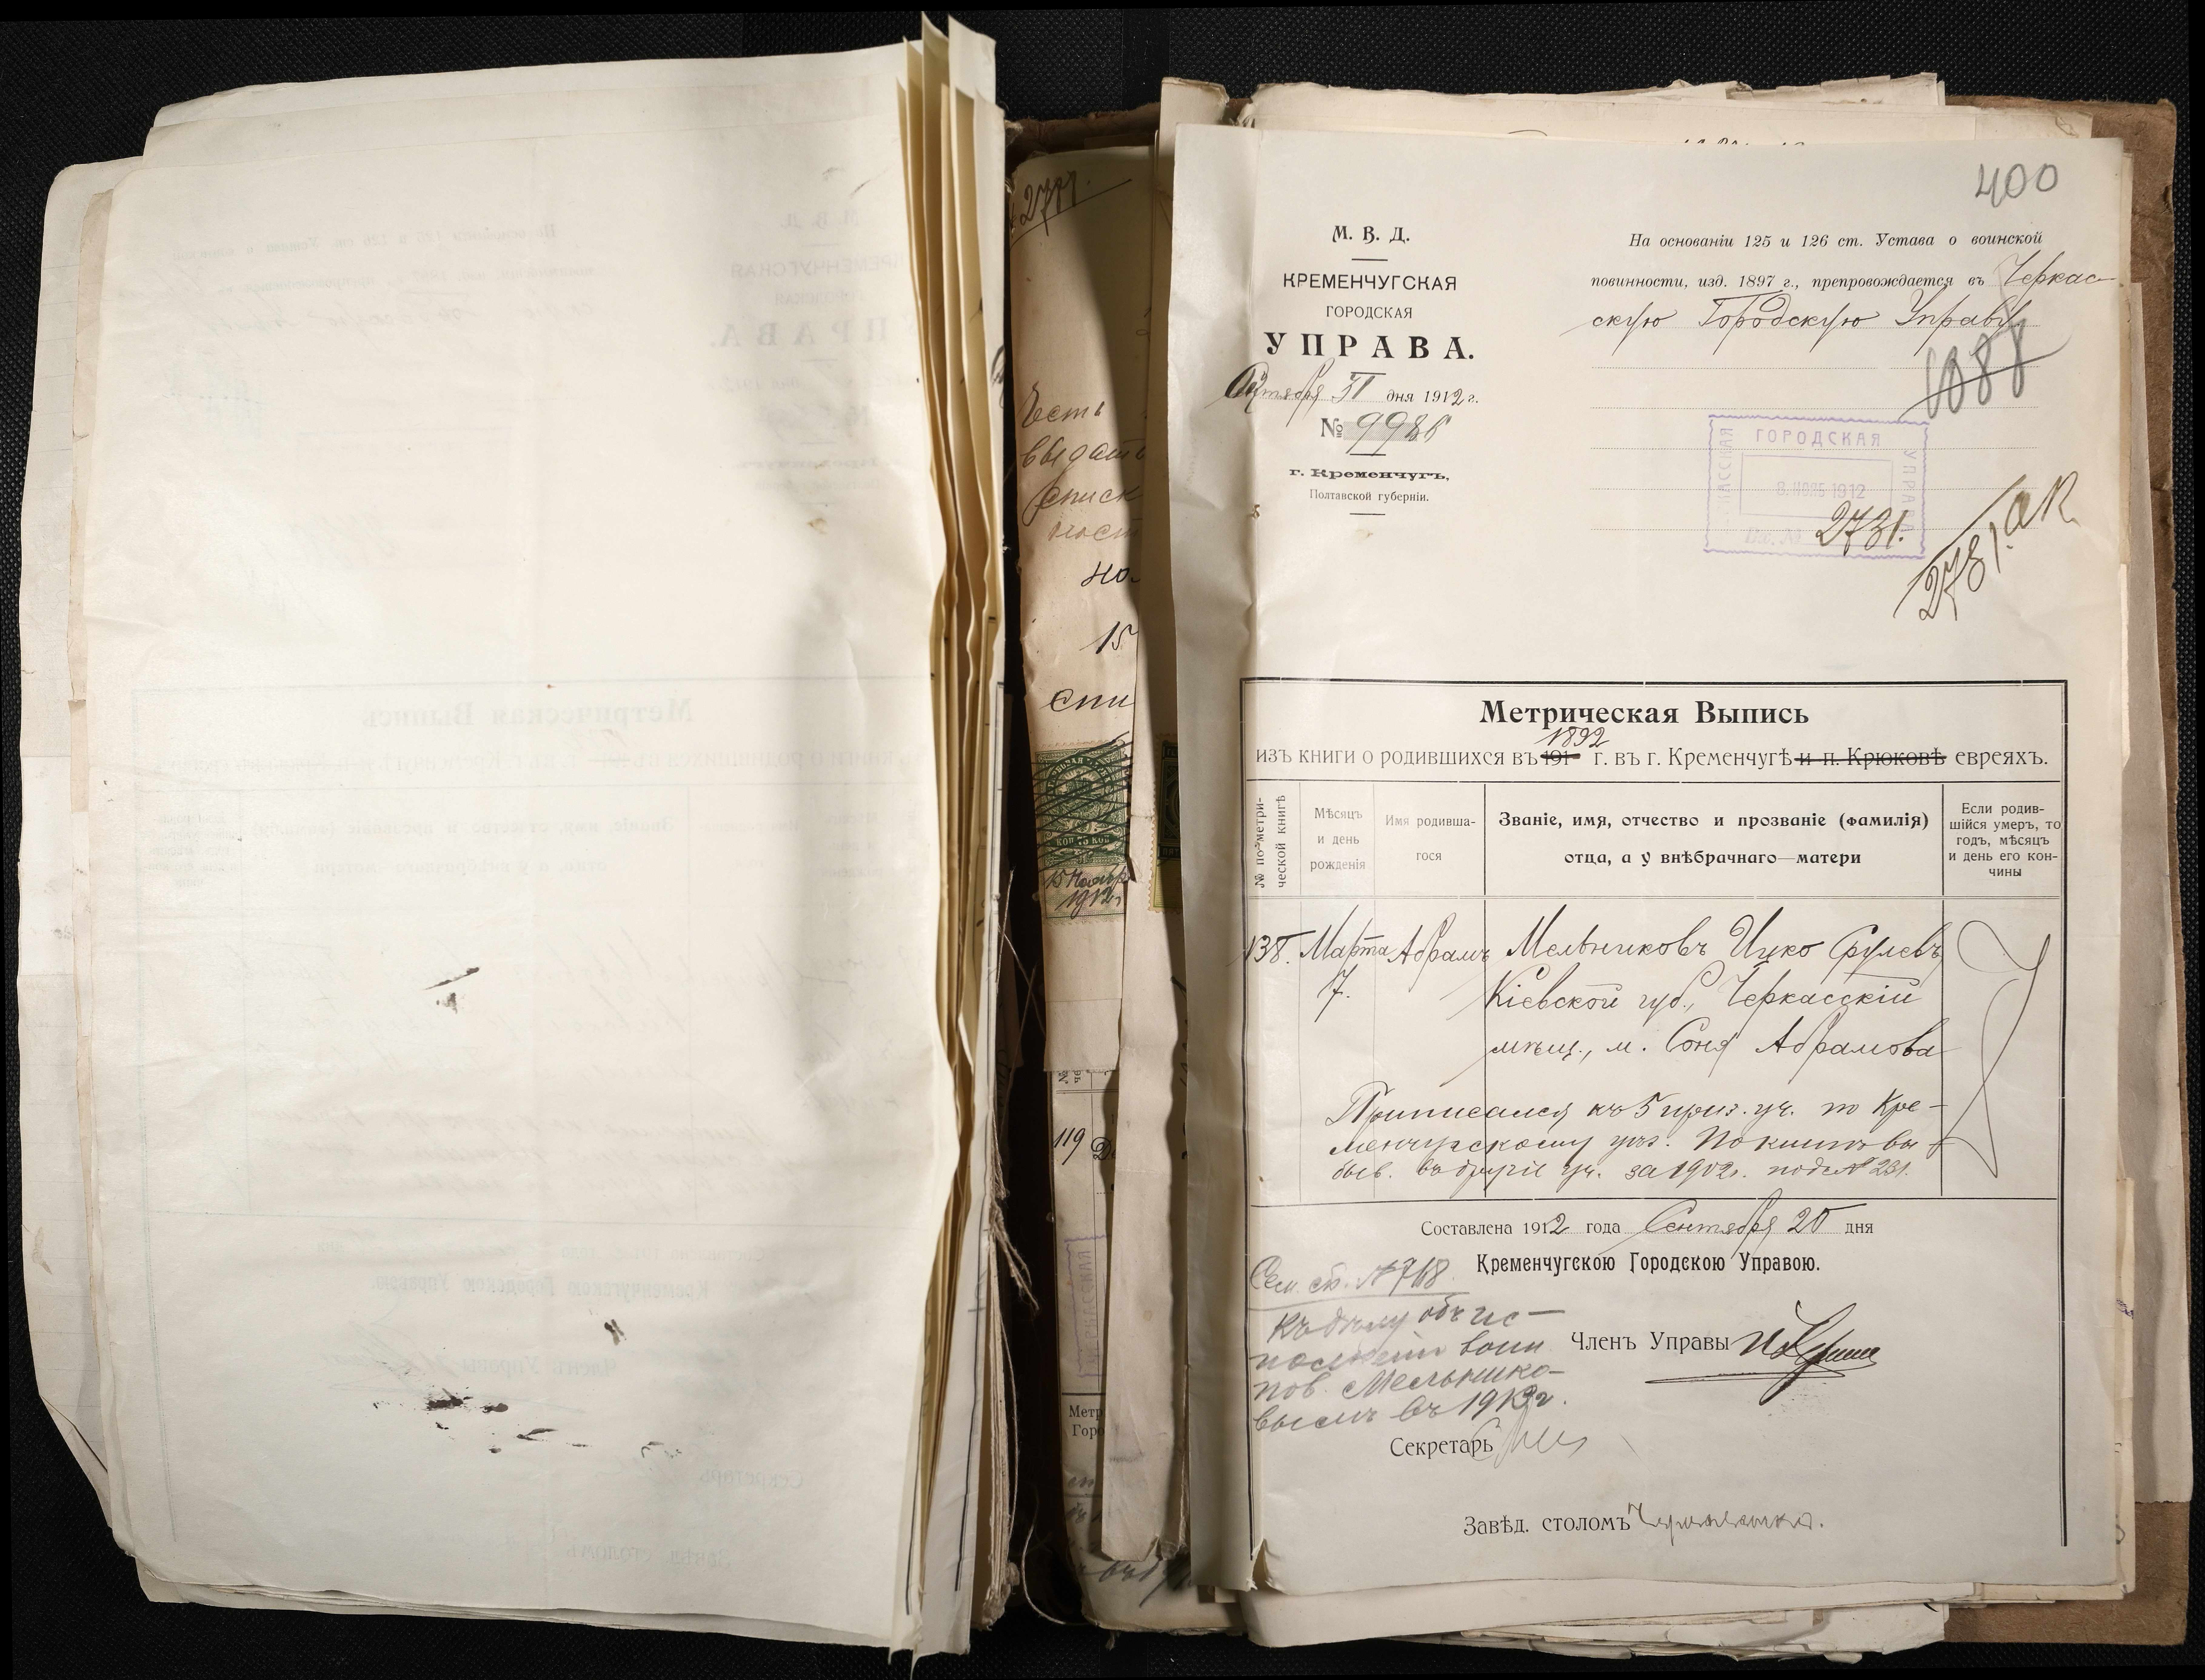 2777.
Честь
выдать
списк
ност
но.
15
спи
КОП 75 КОП
15 Ноября
1912г.
119
ЧЕРКАССКАЯ
Метр
Горо
400
М. В. Д.
КРЕМЕНЧУГСКАЯ
ГОРОДСКАЯ
УПРАВА.
Октября 31 дня 1912 г.
№ 9986
г. Кременчугъ,
Полтавской губерніи.
На основаніи 125 и 126 ст. Устава о воинской
повинности, изд. 1897 г., препровождается въ Черкас-
скую Городскую Управу
1088
ГОРОДСКАЯ
УПРАВА
8. НОЯБ 1912
Вх. №
2731.
2731.
Метрическая Выпись
1892
изъ книги о родившихся въ 191 г. въ г. Кременчугѣ и п. Крюковѣ евреяхъ.
№ по метри-
ческой книгѣ
Мѣсяцъ
и день
рожденія
Имя родивша-
гося
Званіе, имя, отчество и прозваніе (фамилія)
отца, а у внѣбрачнаго—матери
Если родив-
шійся умеръ, то
годъ, мѣсяцъ
и день его кон-
чины
138. Марта Абрамъ Мельниковъ Ицко Срулевъ,
7. Кіевской губ., Черкасскій
мѣщ., м. Соня Абрамова
Приписался къ 5 приз. уч. по Кре-
менчугскому уѣз. По книгѣ вы-
быв. въ другіе уч. за 1902г. подъ № 231.
Составлена 1912 года Сентября 20 дня
Кременчугскою Городскою Управою.
Сем. сп. № 768
Къ дѣлу объ ис-
полненіи воин
пов. Мельнико-
вымъ въ 1913г.
Членъ Управы
Секретарь
Завѣд. столомъ